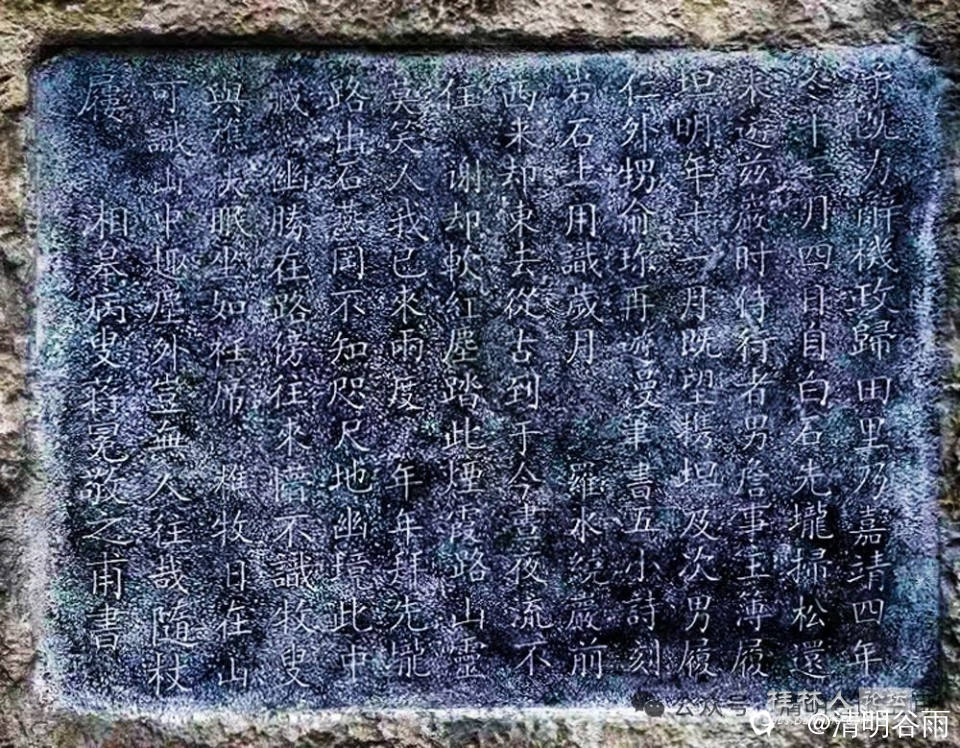 予既力辭機政歸 田里乃嘉靖四年
冬十二月四日自白石先壠掃松還
來遊茲巖时侍行者男詹事主簿履
坦明年十一月既望攜坦及次男履
仁外甥俞再游漫筆書五小詩刻
岩石上用識歲月 羅水繞巖前
西来却東去從古到于今晝夜流不
住 谢却軟紅塵踏此煙霞路山靈
莫笑人我已來兩度 年年拜先壠
路出石燕岡不知咫尺地幽境此中
藏 幽勝在路傍往來不識牧叟
與樵夫眠坐如衽席 樵牧日在山
可識山中趣塵外豈無人往哉隨杖
屨 湘皋病叟蔣冕敬之甫書
公众号
桂林人论坛
@清明谷雨